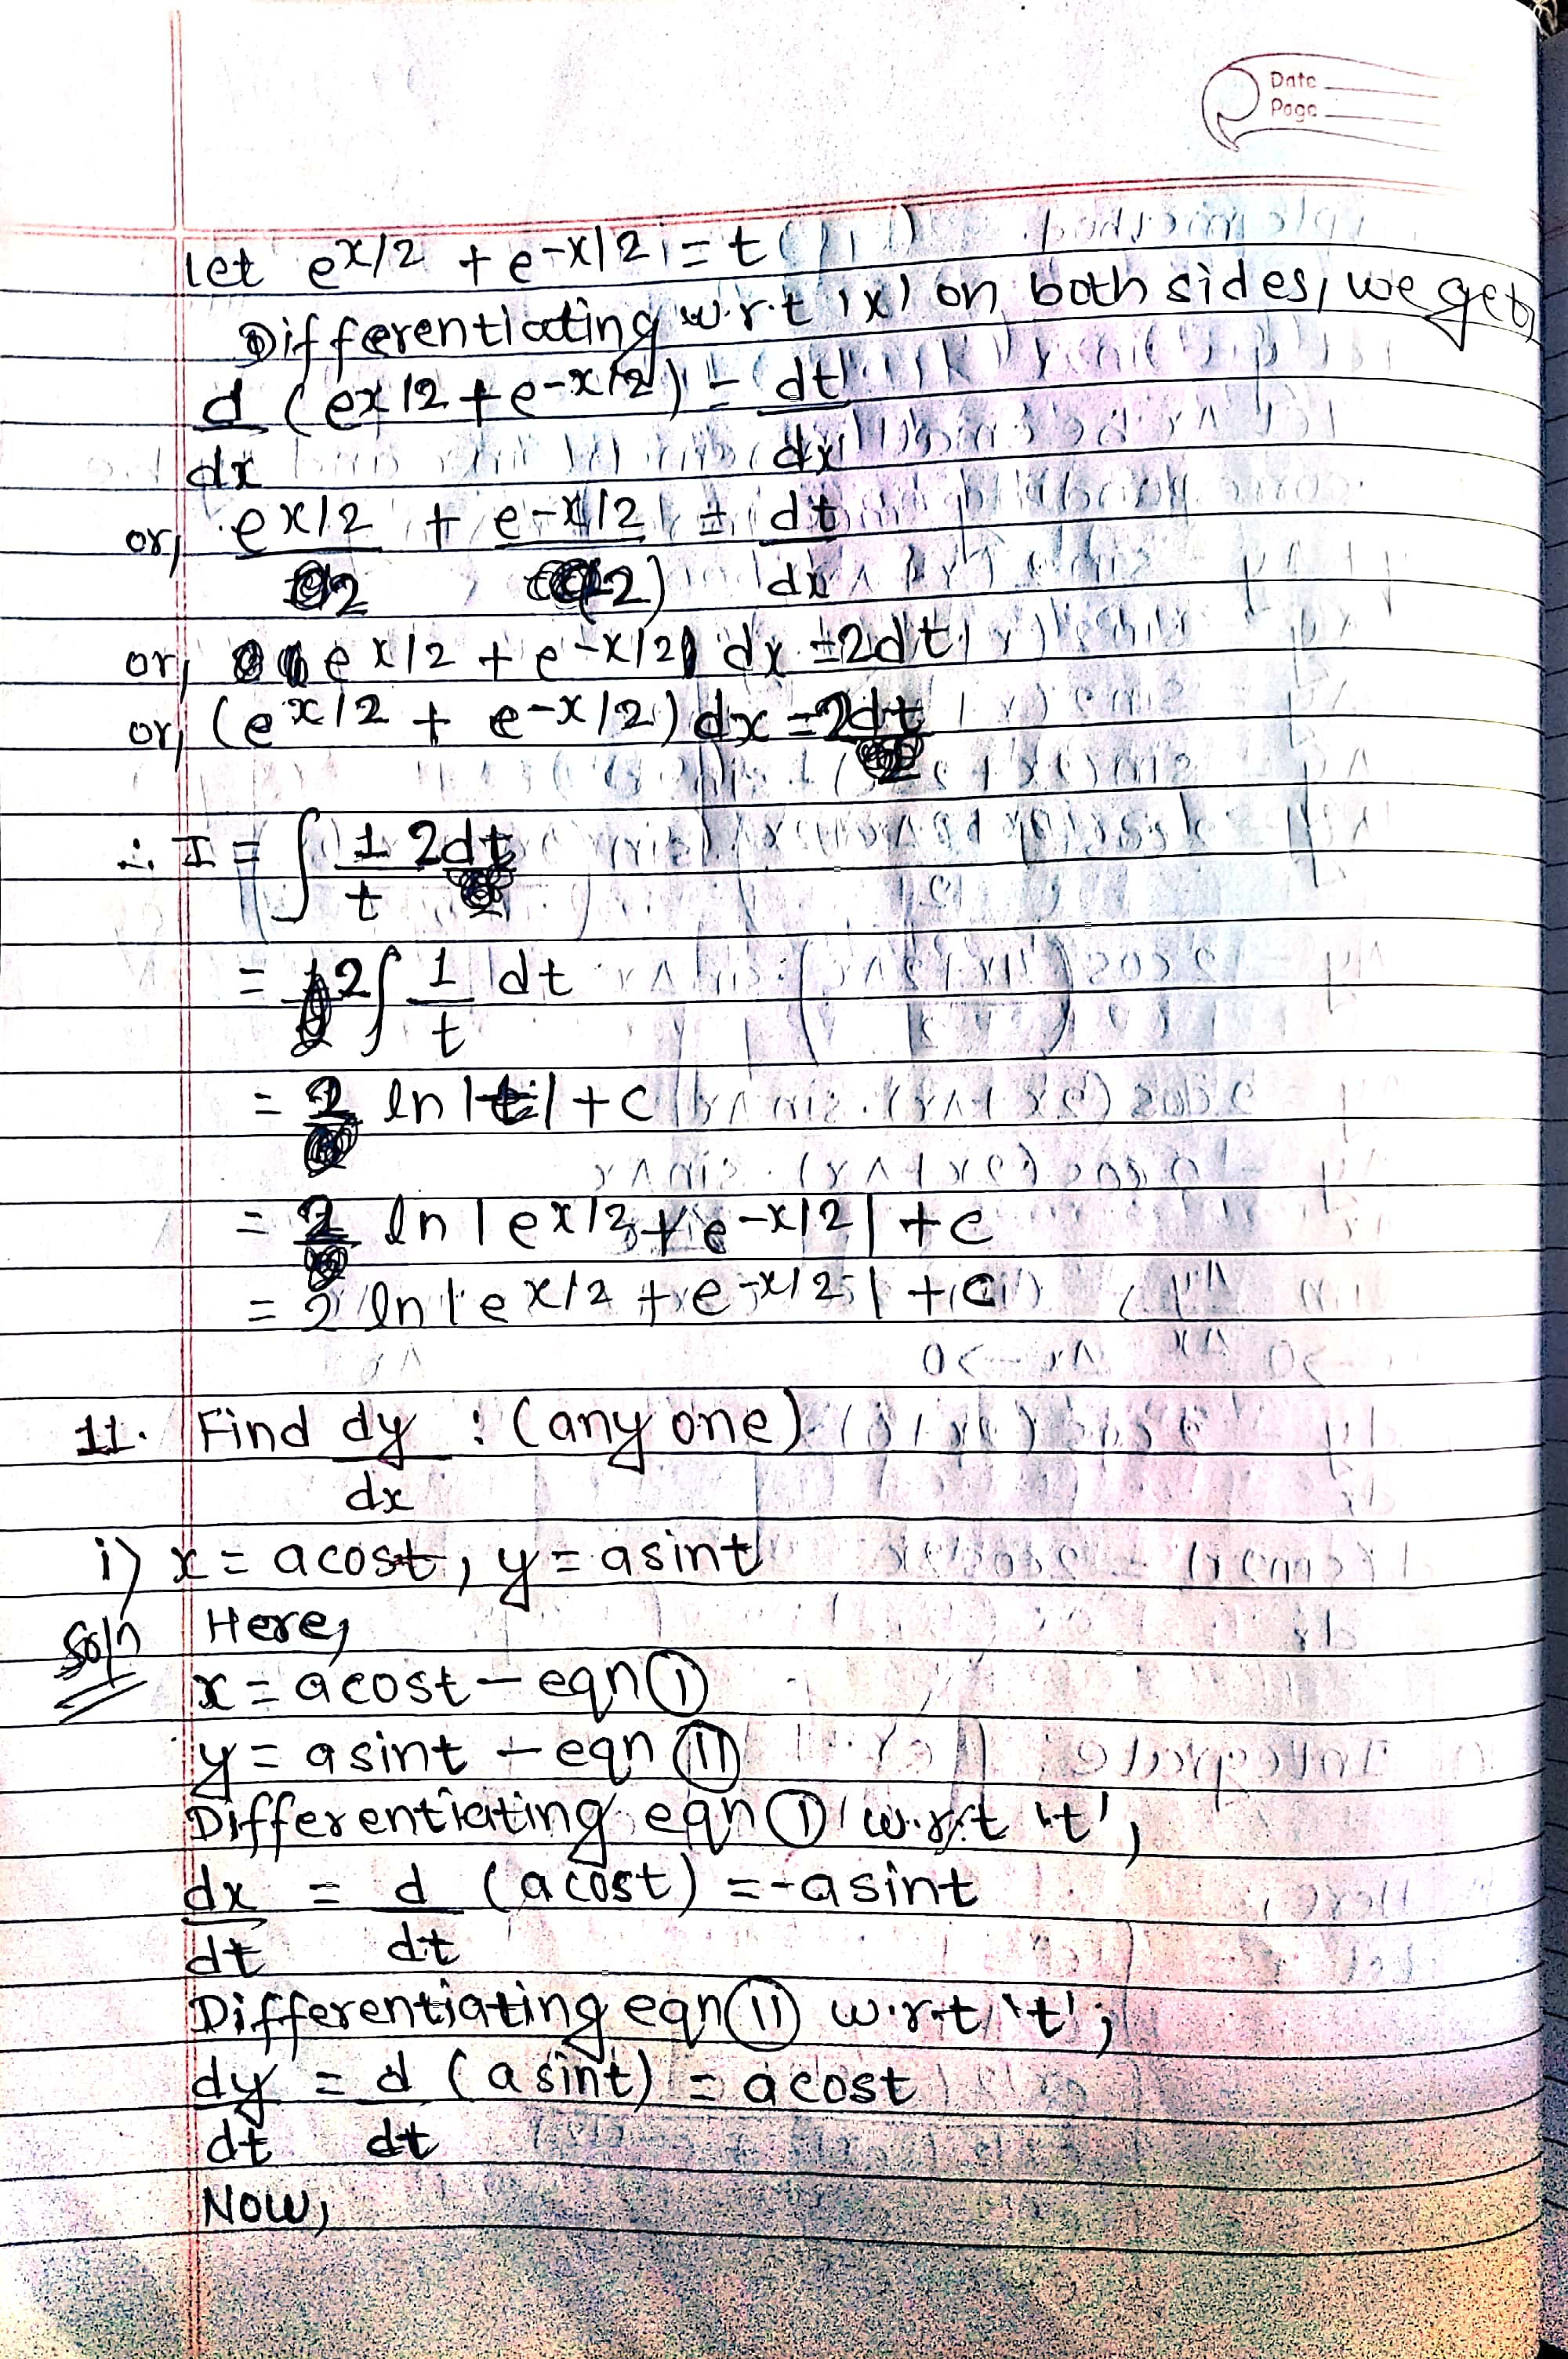 Date
Page
let e^x/2 + e^-x/2 = t
Differentiating w.r.t 'x' on both sides, we get,
d/dx (e^x/2 + e^-x/2) = dt/dx
or, e^x/2 / 2 + e^-x/2 / (-2) = dt/dx
or, e^x/2 + e^-x/2 dx = 2dt
or, (e^x/2 + e^-x/2) dx = 2dt
∴ I = ∫ 1/t 2dt
= 2 ∫ 1/t dt
= 2 ln |t| + c
= 2 ln | e^x/2 + e^-x/2 | + c
= 2 ln | e^x/2 + e^-x/2 | + c
11. Find dy/dx : (any one)
i) x = acost, y = asint
Soln Here,
x = acost – eqn (i)
y = asint – eqn (ii)
Differentiating eqn (i) w.r.t 't',
dx/dt = d/dt (acost) = -asint
Differentiating eqn (ii) w.r.t 't';
dy/dt = d/dt (asint) = acost
Now,